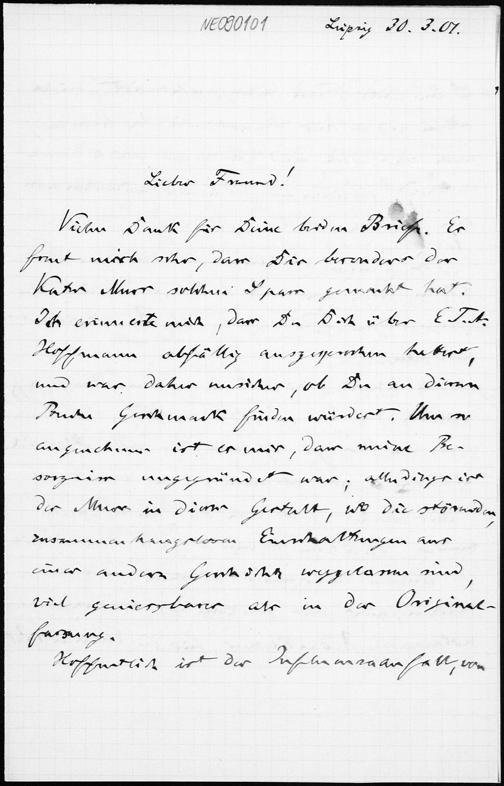 NE090101
Leipzig 30.3.01.
Lieber Freund!
Vielen Dank für Deine beiden Briefe. Es
freut mich sehr, dass Dir besonders der
Kater Murr solchen Spass gemacht hat.
Ich erinnerte mich, dass Du Dich über E.T.A.
Hoffmann abfällig ausgesprochen hattest,
und war daher unsicher, ob Du an diesem
Buche Geschmack finden würdest. Um so
angenehmer ist es mir, dass meine Be-
sorgniss ungegründet war; allerdings ist
der Murr in dieser Gestalt, wo die störenden,
zusammenhangslosen Einschaltungen aus
einer andern Geschichte weggelassen sind,
viel geniessbarer als in der Original-
fassung.
Hoffentlich ist der Influenzaanfall, von